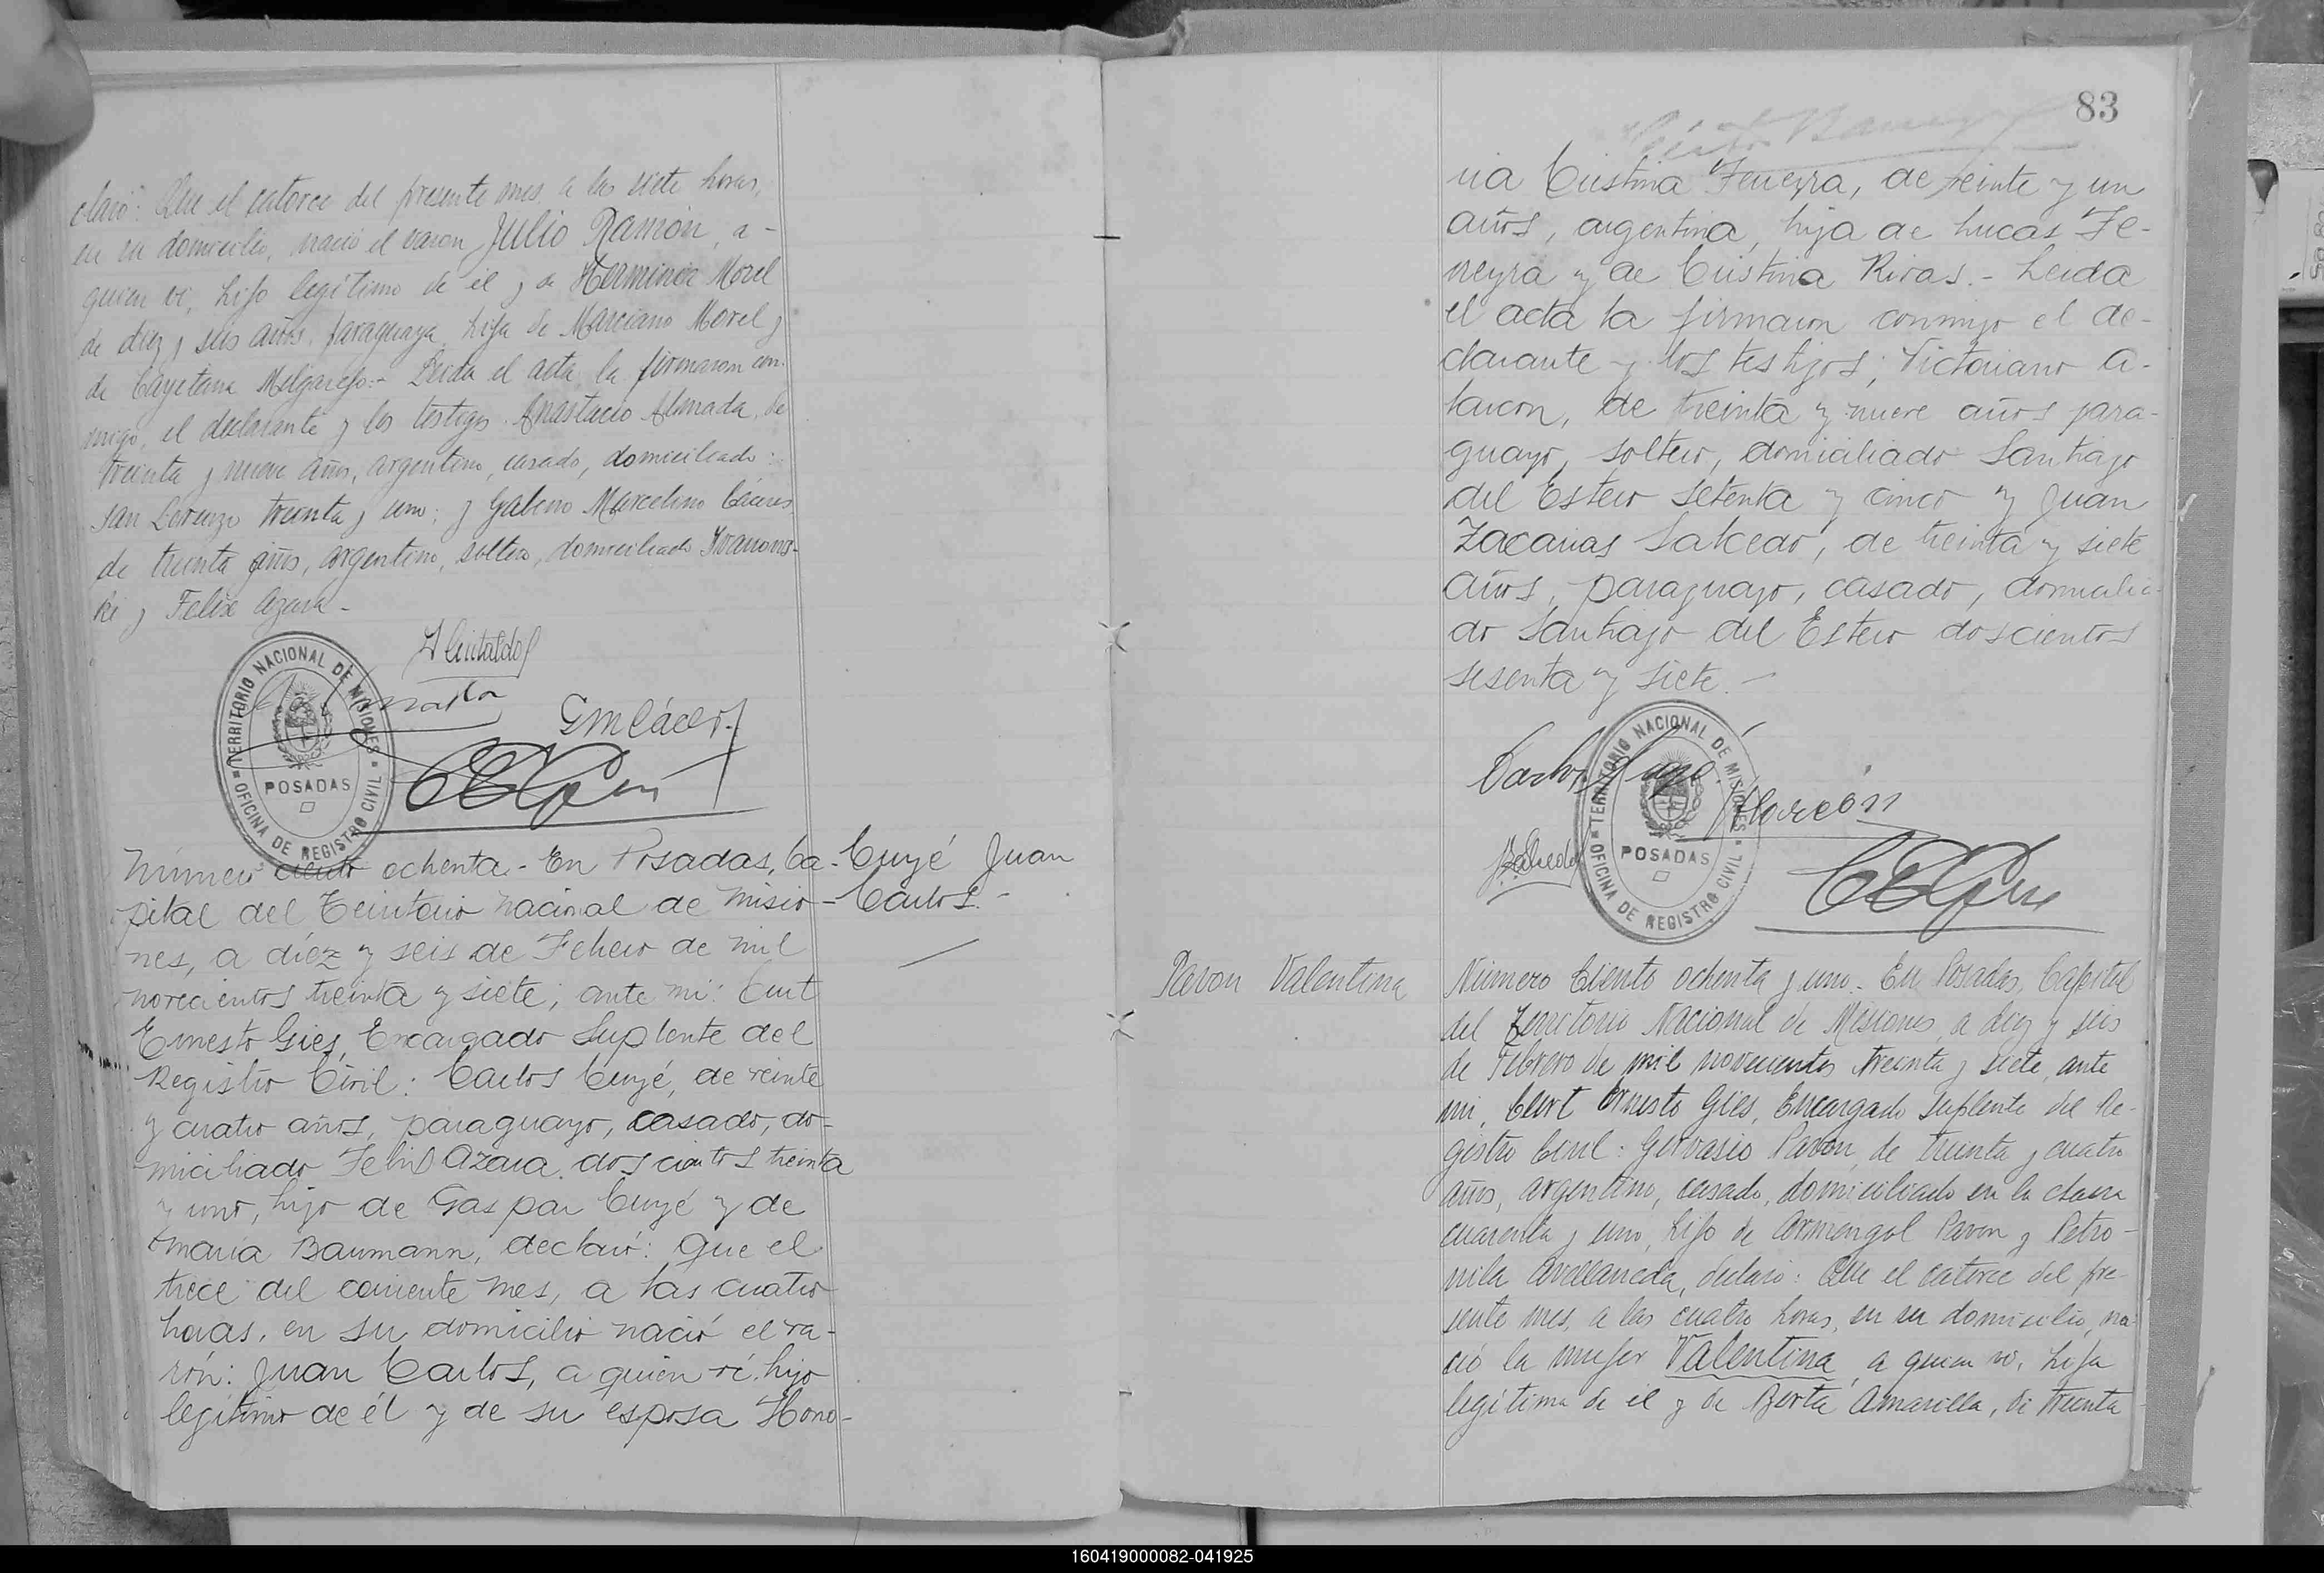 claró: Que el catorce del presente mes, a las siete horas,
en su domicilio, nació el varon Julio Ramón, a-
quien vi, hijo legítimo de él y de Herminia Morel
de diez y seis años, paraguaya, hija de Marciano Morel y
de Cayetana Melgarejo.- Leida el acta la firmaron con-
migo, el declarante y los testigos Anastacio Almada, de
treinta y nueve años, argentino, casado, domiciliado:
San Lorenzo treinta y uno; y Gabino Marcelino Cáceres
de treinta años, argentino, soltero, domiciliado Ivanows-
ki y Felix Azara-
TERRITORIO NACIONAL DE MISIONES
POSADAS
OFICINA DE REGISTRO CIVIL
GMCáceres
Número ciento ochenta.- En Posadas, Ca-
pital del Territorio Nacional de Misio-
nes, a diez y seis de Febrero de mil
novecientos treinta y siete; ante mi: Curt
Ernesto Gies, Encargado Suplente del
Registro Civil: Carlos Cuyé, de veinte
y cuatro años, paraguayo, casado, do-
miciliado Felix Azara doscientos treinta
y uno, hijo de Gaspar Cuyé y de
María Baumann, declaró: Que el
trece del corriente mes, a las cuatro
horas, en su domicilio nació el va-
rón: Juan Carlos, a quien vi, hijo
legítimo de él y de su esposa Hono-
Cuyé Juan
Carlos.-
83
ria Cristina Ferreyra, de veinte y un
años, argentina, hija de Lucas Fe-
rreyra y de Cristina Rivas.- Leida
el acta la firmaron conmigo el de-
clarante y los testigos; Victoriano A-
larcon, de treinta y nueve años para-
guayo, soltero, domiciliado Santiago
del Estero setenta y cinco y Juan
Zacarias Salcedo, de treinta y siete
años, paraguayo, casado, domicilia-
do Santiago del Estero doscientos
sesenta y siete.-
Carlos Cuyé
Alarcón
JZSalcedo
TERRITORIO NACIONAL DE MISIONES
POSADAS
OFICINA DE REGISTRO CIVIL
Pavon Valentina
Número Ciento ochenta y uno.- En Posadas, Capital
del Territorio Nacional de Misiones, a diez y seis
de Febrero de mil novecientos treinta y siete, ante
mi, Curt Ernesto Gies, Encargado Suplente del Re-
gistro Civil: Gervasio Pavón, de treinta y cuatro
años, argentino, casado, domiciliado en la chacra
cuarenta y uno, hijo de Armengol Pavon y Petro-
nila Avellaneda, declaró: Que el catorce del pre-
sente mes, a las cuatro horas, en su domicilio, na-
ció la mujer Valentina, a quien vi, hija
legítima de él y de Berta Amarilla, de treinta
160419000082-041925